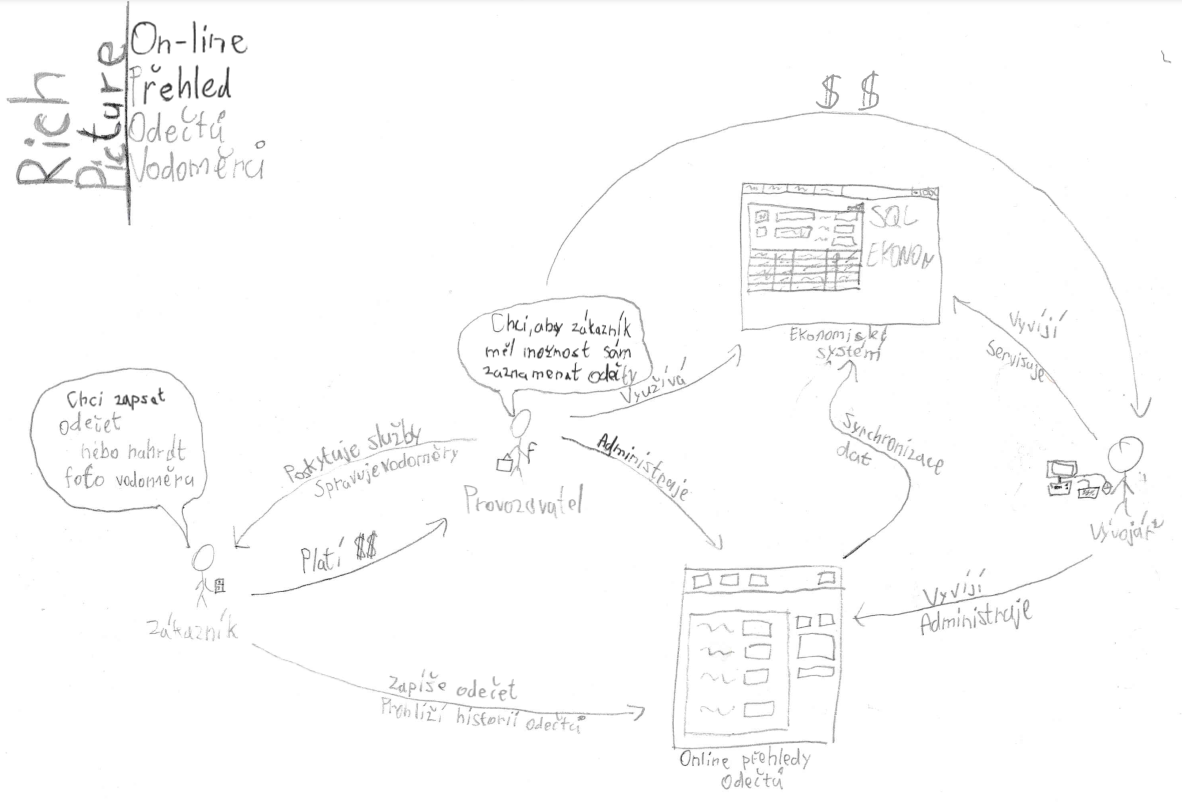 Rich
Picture
On-line
Přehled
Odečtů
Vodoměrů
$ $
SQL
EKONOM
Ekonomický
systém
Chci, aby zákazník
měl možnost sám
zaznamenat odečty
Využívá
Vyvíjí
Servisuje
Chci zapsat
odečet
nebo nahrát
foto vodoměru
Poskytuje služby
Spravuje vodoměry
Administruje
Synchronizace
dat
Provozovatel
Vývojář
Platí $$
Zákazník
Vyvíjí
Administruje
Zapíše odečet
Prohlíží historii odečtů
Online přehledy
odečtů